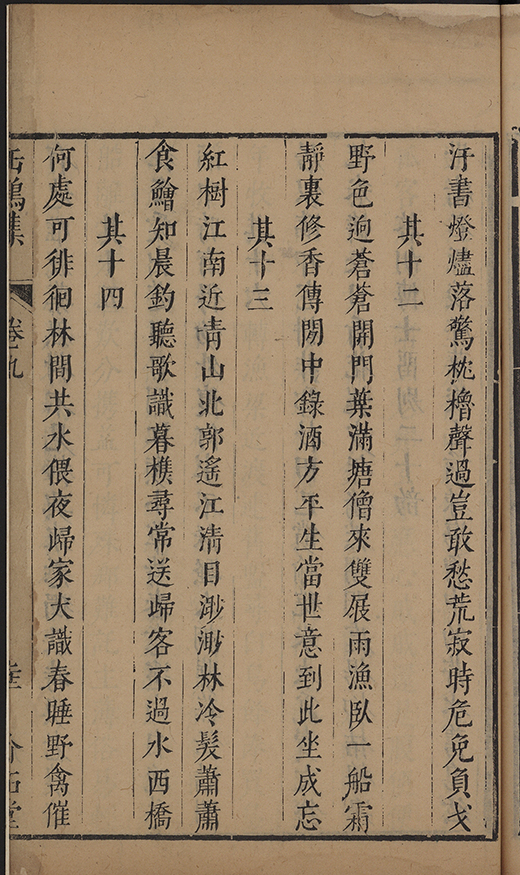 汙書燈燼落驚枕櫓聲過豈敢愁荒寂時危免負戈
其十二
野色迥蒼蒼開門葉滿塘僧來雙屐雨漁臥一船霜
靜裏修香傳閒中錄酒方平生當世意到此坐成忘
其十三
紅樹江南近青山北郭遙江清目渺渺林冷髮蕭蕭
食鱠知晨釣聽歌識暮樵尋常送歸客不過水西橋
其十四
何處可徘徊林間共水偎夜歸家犬識春睡野禽催
鳴集 卷九